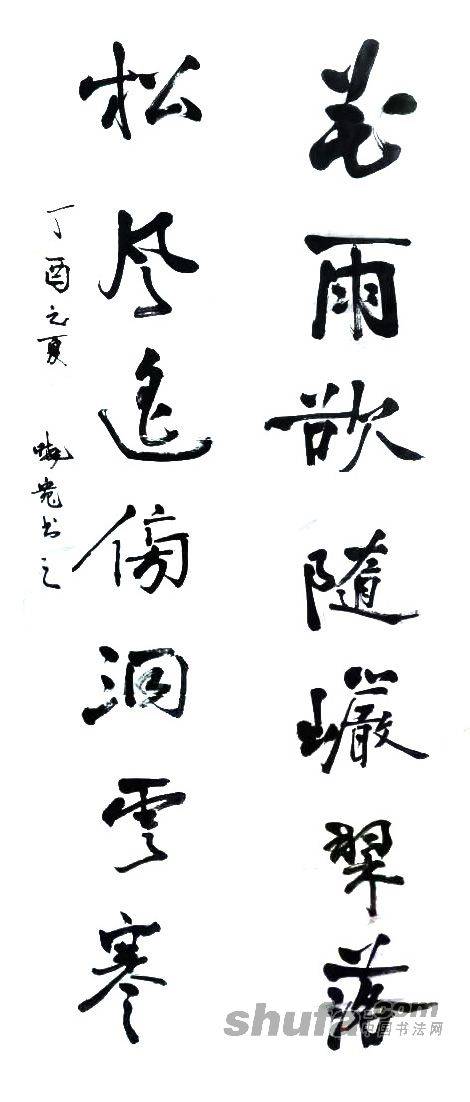 花雨欲隨巗翠落
松风遥傍洞雲寒
丁酉之夏 书之
shufa.com
中国书法网